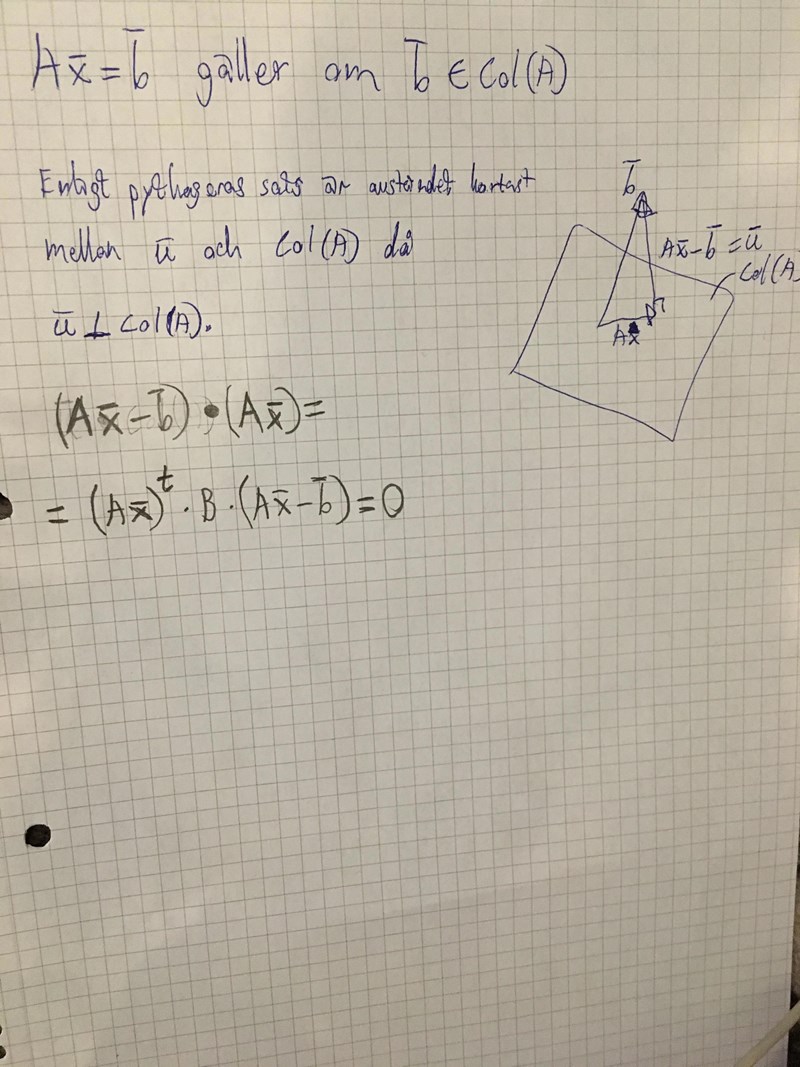 Ax̄ = b̄ gäller om b̄ ∈ Col(A)
Enligt pythagoras sats är avståndet kortast
mellan ū och Col(A) då
ū ⊥ Col(A).
b̄
Ax̄ - b̄ = ū
Col(A)
Ax̄
(Ax̄ - b̄) • (Ax̄) =
= (Ax̄)ᵗ · B · (Ax̄ - b̄) = 0